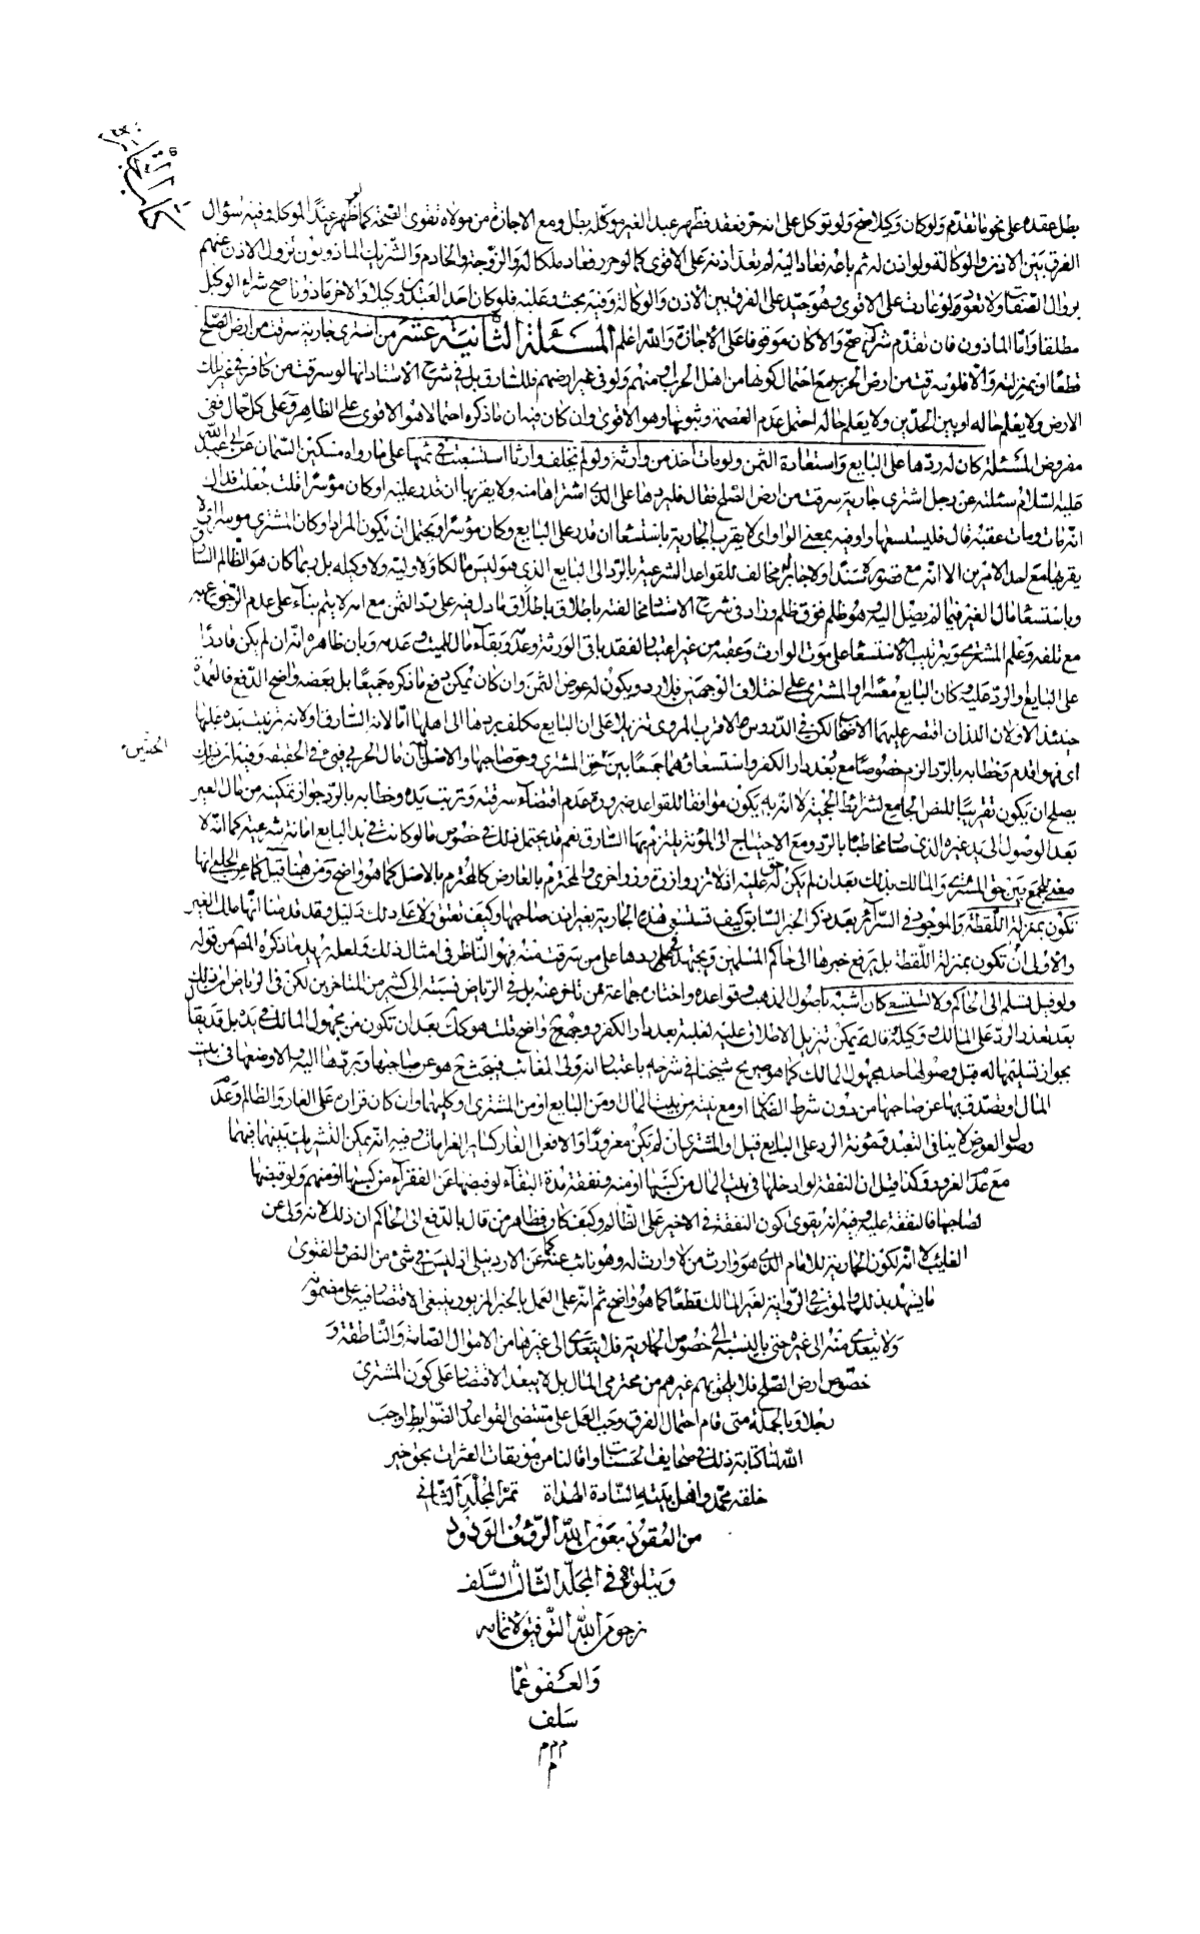 كتاب التجارة
بطل عقده على نحو ما تقدّم ولو كان وكيلا صح ولو توكل على انه حر فعقد فظهر عبد الغير موكّله بطل ومع الاجازة من مولاه تقوى الصّحة كما لو ظهر عبدًا للموكل وفيه سؤال
الفرق بين الاذن والوكالة ولو اذن له ثم باعه فعاد اليه لم يعد اذنه على الاقوى كما لو حرر فعاد ملكا له والزوجة والخادم والشّريك الماذونون بزول الاذن عنهم
بزوال الصّفات ولا تعود ولو عادت على الاقوى وهو جيّد على الفرق بين الاذن والوكالة وفيه بحث وعليه فلو كان احد العبدين وكيلا والاخر ماذونا صح شراء الوكيل
مطلقا وامّا الماذون فان تقدّم شرائه صحّ والا كان موقوفا على الاجازة والله اعلم المسئلة الثانية عشر من اشترى جارية سرقت من ارض الصّلح
قطعًا او بمنزلته والا فلو سرقت من ارض الحرب مع احتمال كونها من اهل الحرب او منهم ولو في غير ارضهم فللسّارق بل في شرح الاستاد انها لو سرقت من كافر في غير تلك
الارض ولا يعلم حاله او بين الحدّين ولا يعلم حاله احتمل عدم العصمة وثبوتها وهو الاقوى وان كان فيه ان ما ذكره احتمالا هو الاقوى على الظاهر وعلى كل حال ففي
مفروض المسئلة كان له ردّها على البايع واستعادة الثمن ولو مات اخذ من وارثه ولو لم يخلف وارثا استسعيت في ثمنها على ما رواه مسكين السّمان عن ابي عبد الله
عليه السّلام سئلته عن رجل اشترى جارية سرقت من ارض الصّلح فقال فليردها على الذي اشتراها منه ولا يقربها ان قدر عليه او كان موسرا قلت جعلت فداك
انّه مات ومات عقبه قال فليستسعها واو فيه بمعنى الواو اي لا يقرب الجارية باستسعاء ان قدر على البايع وكان موسرا ويحتمل ان يكون المراد او كان المشتري موسرا لا
يقربها مع احد الامرين الا انّه مع قصوره سندا ولا جابر له مخالف للقواعد الشرعية بالرد الى البايع الذي هو ليس مالكا ولا وليه ولا وكيله بل ربما كان هو الظالم السّارق
وباستسعاء مال الغير فيما لم يصل اليه وهو ظلم فوق ظلم وزاد في شرح الاستاد مخالفته باطلاق باطلاق ما دل فيه على ردّ الثمن مع انه لا يتم بناء على عدم الرّجوع به
مع تلفه وعلم المشتري وبترتيب الاستسعاء على موت الوارث وعقبه من غير اعتبار لفقد باقي الورثة وعدم بقاء مال للميّت وعدمه وبان ظاهره انّه ان لم يكن قادرًا
على البايع والرد عليه وكان البايع معسرًا او المشتري على اختلاف الوجهين فلا رد ويكون له عوض الثمن وان كان يمكن دفع ما ذكره جميعًا بل بعضه واضح الدّفع فالعمدة
حينئذ الاولان اللذان اقتصر عليهما الاصحاب لكن في الدّروس الاقرب المروي تنزيلا على ان البايع مكلف بردها الى اهلها امّا لانه السّارق او لانه ترتبت يده عليها
اي فهو اقدم وخطابه بالرّد الزم خصوصًا مع بعد دار الكفر واستسعائها جمعًا بين حق المشتري وحق صاحبها والاصل ان مال الحربي فيئ في الحقيقة وفيه ان ذلك
الحسّين
يصلح ان يكون تقريبًا للنص الجامع لشرائط الحجية لا انّه به يكون موافقا للقواعد ضرورة عدم اقتضاء سرقته وترتب يده وخطابه بالرّد جواز تمكينه من مال الغير
بعد الوصول الى يد غيره الذي صار مخاطبًا بالرد ومع الاحتياج الى المؤنة يلتزم بها السّارق نعم قد يحتمل ذلك في خصوص ما لو كانت في يد البايع امانة شرعية كما انّه لا
معنى للجمع بين حق المشتري والمالك بذلك بعد ان لم يكن له حق عليه اذ لا تزر وازرة وزر اخرى والمحترم بالعارض كالمحترم بالاصل كما هو واضح ومن هنا قيل كما عن الحلي انها
تكون بمنزلة اللّقطة والموجود في السّرائر بعد ذكر الخبر السّابق كيف تستسعى هذه الجارية بغير اذن صاحبها وكيف تعتق ولا على ذلك دليل وقد قدمنا انّها ملك الغير
والاولى ان تكون بمنزلة اللّقطة بل يرفع خبرها الى حاكم المسلمين ويجتهد في ردها على من سرقت منه فهو النّاظر في امثال ذلك ولعله يريد ما ذكره المص من قوله
ولو قيل تسلم الى الحاكم ولا تستسعى كان اشبه باصول المذهب وقواعده واختاره جماعة ممن تاخر عنه بل في الرّياض نسبته الى كثير من المتاخرين لكن في الرياض ان ذلك
بعد تعذر الرّد على المالك او وكيله قال ويمكن تنزيل الاطلاق عليه لغلبة بعد دار الكفر وهو جيّد واضح قلت هو كك بعد ان تكون من مجهول المالك في يده بل قد يقال
بجواز تسليمها له قبل وصولها حد مجهول المالك كما هو صريح شيخنا في شرحه باعتبار انّه ولى الغائب فيبحث هو عن صاحبها ويردّها اليه والا وضعها في بيت
المال او تصدّق بها عن صاحبها من دون شرط الضّمان او مع نيته من بيت المال ومن البايع او من المشتري او كليهما وان كان قراره على الغار والظالم وعدم
وصول العوض لا ينافي التعبد ومؤنة الرد على البايع قيل او المشتري ان لم يكن مغرورًا والا فعلى الغار كسائر الغرامات وفيه انّه يمكن التشريك بينهما فيهما
مع عدم الغرور وكذا قيل ان النفقة لو ادخلها في بيت المال من كسبها او منه ونفقة مدة البقاء لو قبضها عن الفقراء من كسبها او منهم ولو قبضها
لصاحبها فالنفقة عليه وفيه انه يقوى كون النفقة في الاخير على الظالم وكيف كان فظاهر من قال بالدّفع الى الحاكم ان ذلك لانه ولى عن
الغايب لا انّه لكون الجارية للامام الذي هو وارث من لا وارث له وهو نائب عنه كما عن الاردبيلي اذ ليس في شيء من النص والفتوى
ما يشهد بذلك والموت في الرّواية لغير المالك قطعًا كما هو واضح ثم انّه على العمل بالخبر المزبور ينبغي الاقتصار فيه على مضمونه
ولا يتعدى منه الى غيره حتى بالنسبة الى خصوص الجارية فلا يتعدى الى غيرها من الاموال الصّامتة والنّاطقة و
خصوص ارض الصّلح فلا يلحق بهم غيرهم من محترمي المال بل لا يبعد الاقتصار على كون المشتري
رجلا وبالجملة متى قام احتمال الفرق وجب العمل على مقتضى القواعد والضّوابط اوجب
الله لنا كتابة ذلك في صحايف الحسنات واقالنا من موبقات العثرات بحق خير
خلقه محمّد واهل بيته السّادة الهداة تمّ المجلّد الثاني
من العقود بعون الله الرّؤف الودود
ويتلوه في المجلّد الثالث السّلف
نرجو من الله التّوفيق لاتمامه
والعفو عمّا
سلف
م م م
م